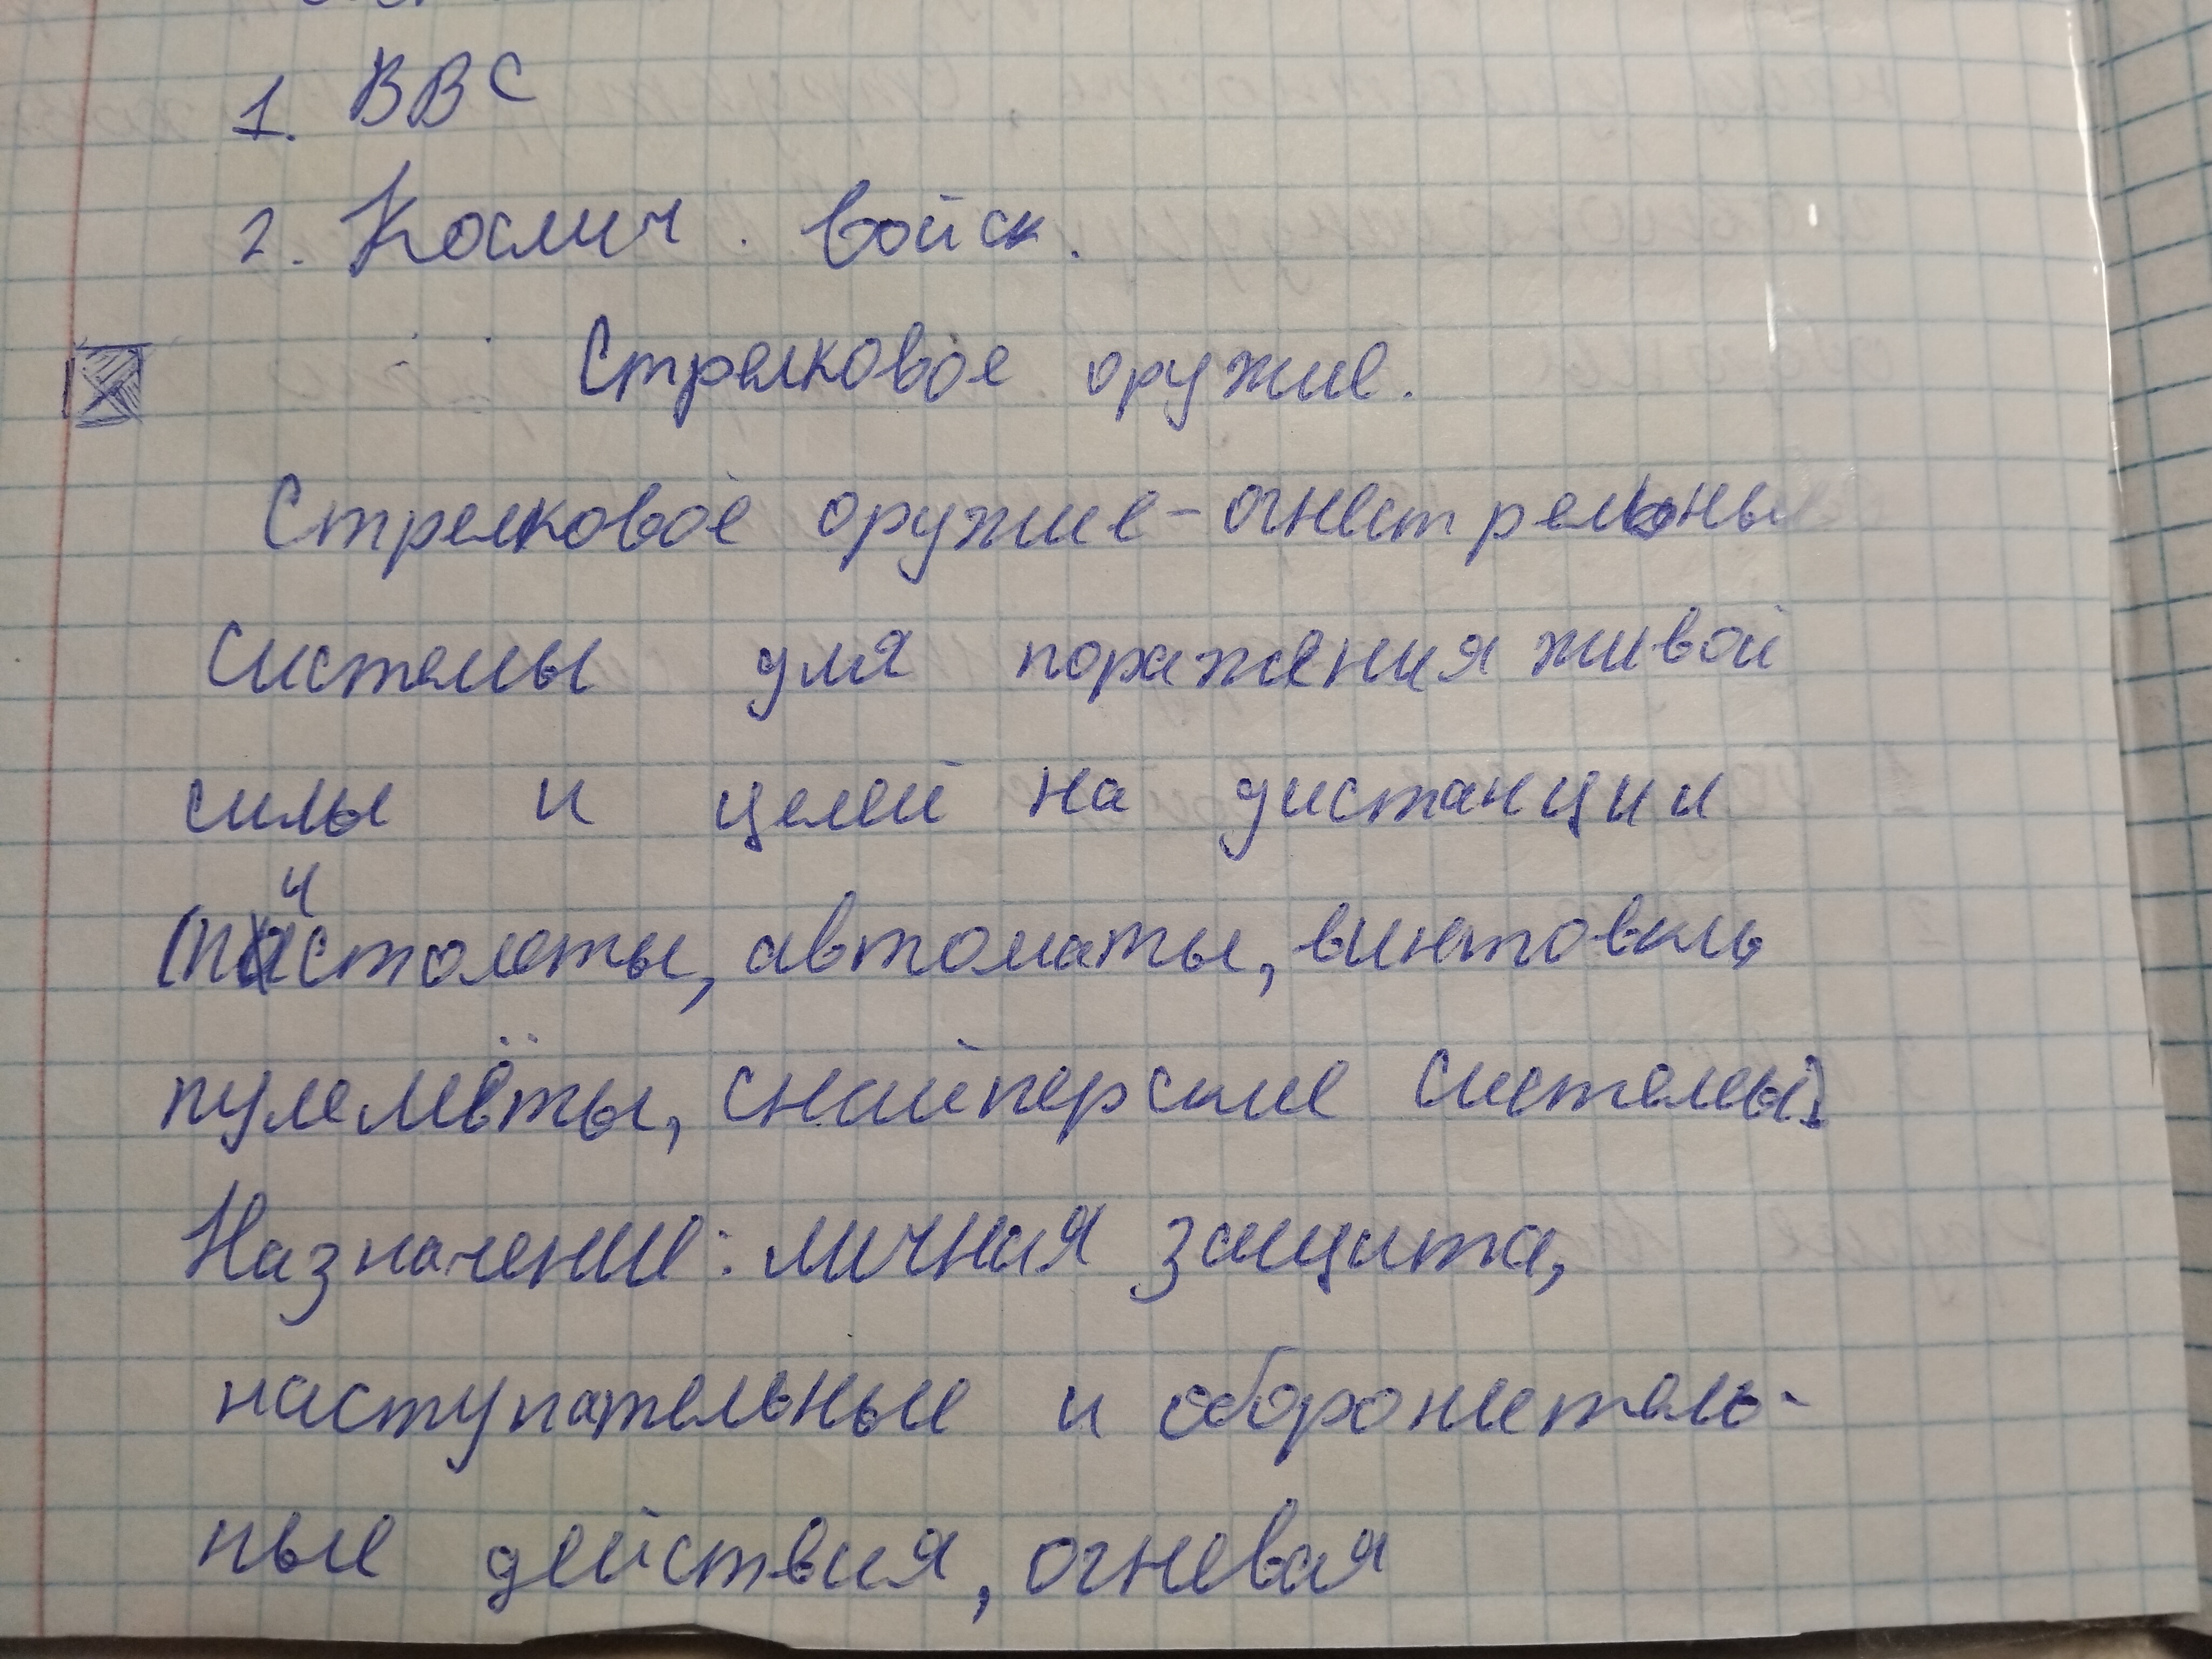 1. ВВС
2. Космич. войск.
Стрелковое оружие.
Стрелковое оружие - огнестрельные
системы для поражения живой
силы и целей на дистанции
(пистолеты, автоматы, винтовки,
пулемёты, снайперские системы).
Назначение: личная защита,
наступательные и оборонитель-
ные действия, огневая